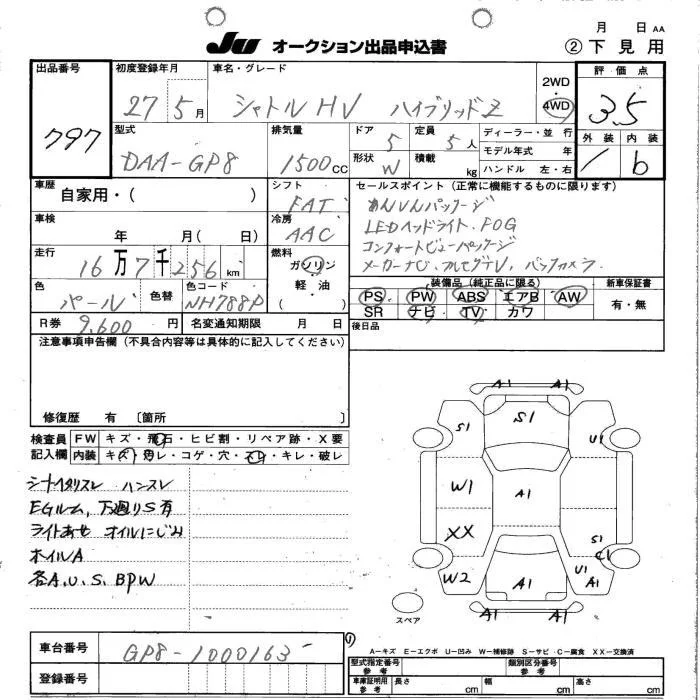 月 日 AA
JU オークション出品申込書
② 下見用
出品番号
797
初度登録年月
27 5月
車名・グレード
シャトルHV ハイブリッドZ
2WD
4WD
評価点
3.5
外装 内装
1 b
型式
DAA-GP8
排気量
1500cc
ドア
5
定員
5人
形状
W
積載
kg
ディーラー・並行
モデル年式 年
ハンドル 左・右
車歴
自家用・( )
シフト
FAT
セールスポイント(正常に機能するものに限ります)
あんしんパッケージ
LEDヘッドライト、FOG
コンフォートビューパッケージ
メーカーナビ、フルセグTV、バックカメラ
車検
年 月( 日)
冷房
AAC
走行
16万7千256km
燃料
ガソリン
軽油
( )
色
パール
色替
色コード
NH788P
装備品(純正品に限る)
PS PW ABS エアB AW
SR ナビ TV カワ
新車保証書
有・無
R券 9,600円
名変通知期限 月 日
後日品
注意事項申告欄(不具合内容等は具体的に記入してください)
修復歴 有 〔箇所 〕
検査員
記入欄
FW キズ・飛石・ヒビ割・リペア跡・X要
内装 キズ・汚レ・コゲ・穴・スレ・キレ・破レ
シートイタミスレ ハンスレ
EGルーム、下廻りS有
ライトあせ オイルにじみ
ホイルA
各A.U.S.BPW
A1 A1
S1 S1 U1
W1 A1
XX S1
C1
W2 A1 U1 A1
A1 A1
スペア
車台番号
GP8-1000163
登録番号
A-キズ E-エクボ U-凹み W-補修跡 S-サビ C-腐食 XX-交換済
型式指定番号
参考
類別区分番号
参考
車庫証明用
参考
長さ cm
幅 cm
高さ cm